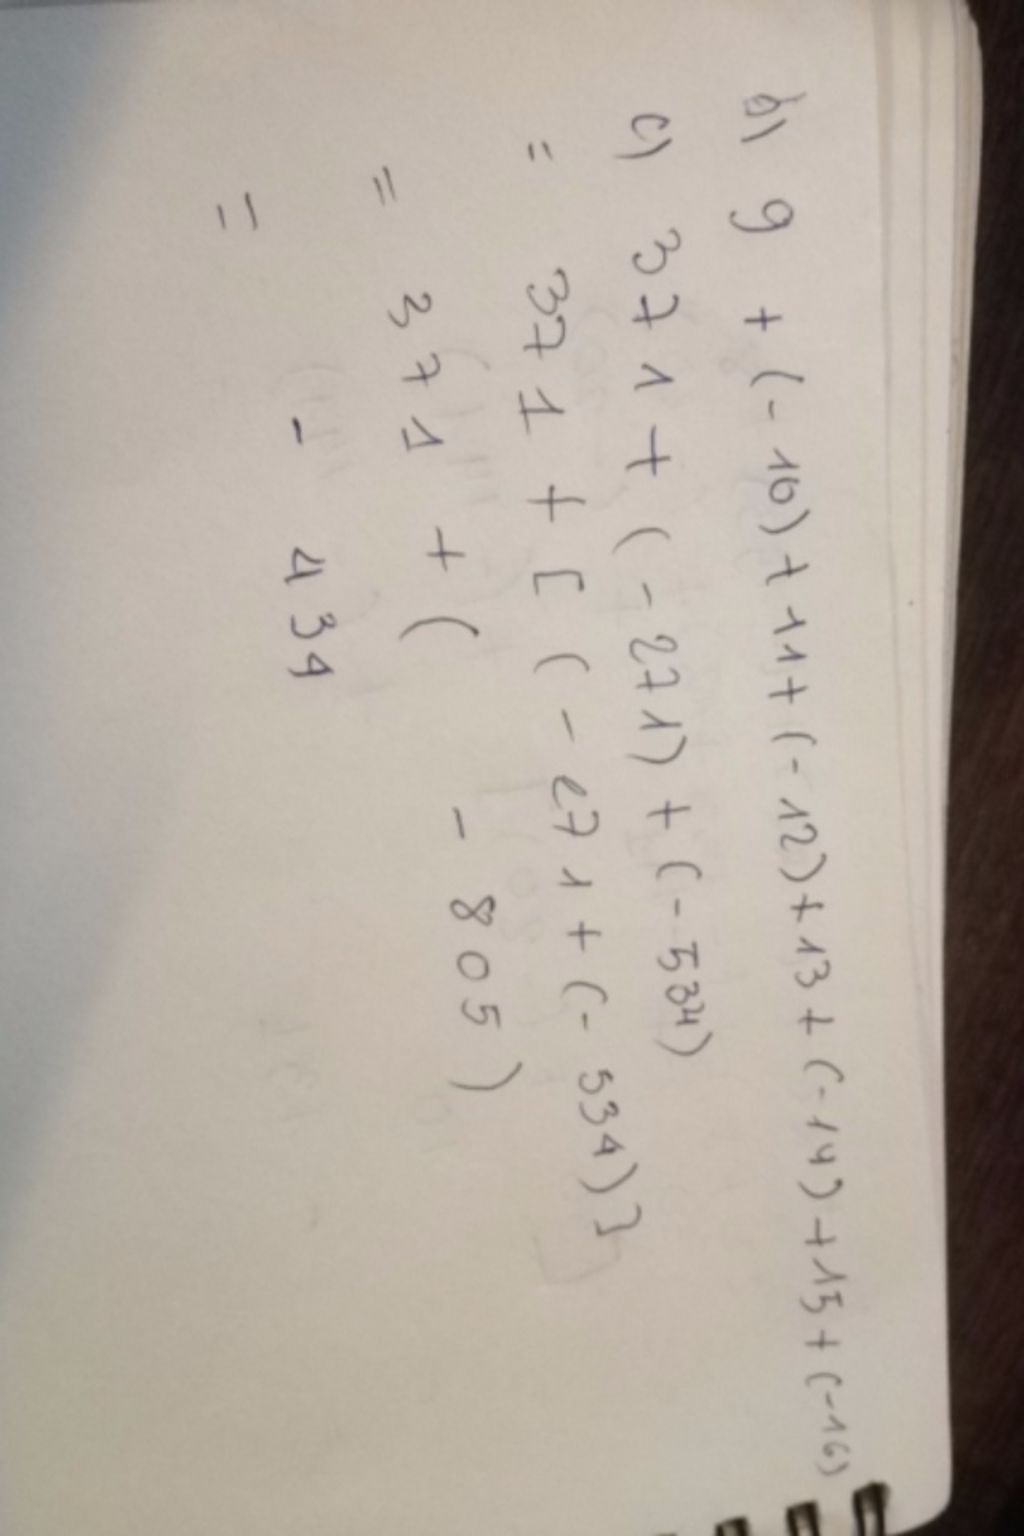 b) 9 + (-10) + 11 + (-12) + 13 + (-14) + 15 + (-16)
c) 371 + (-271) + (-534)
= 371 + [ (-271 + (-534) ]
= 371 + ( - 805 )
= - 434